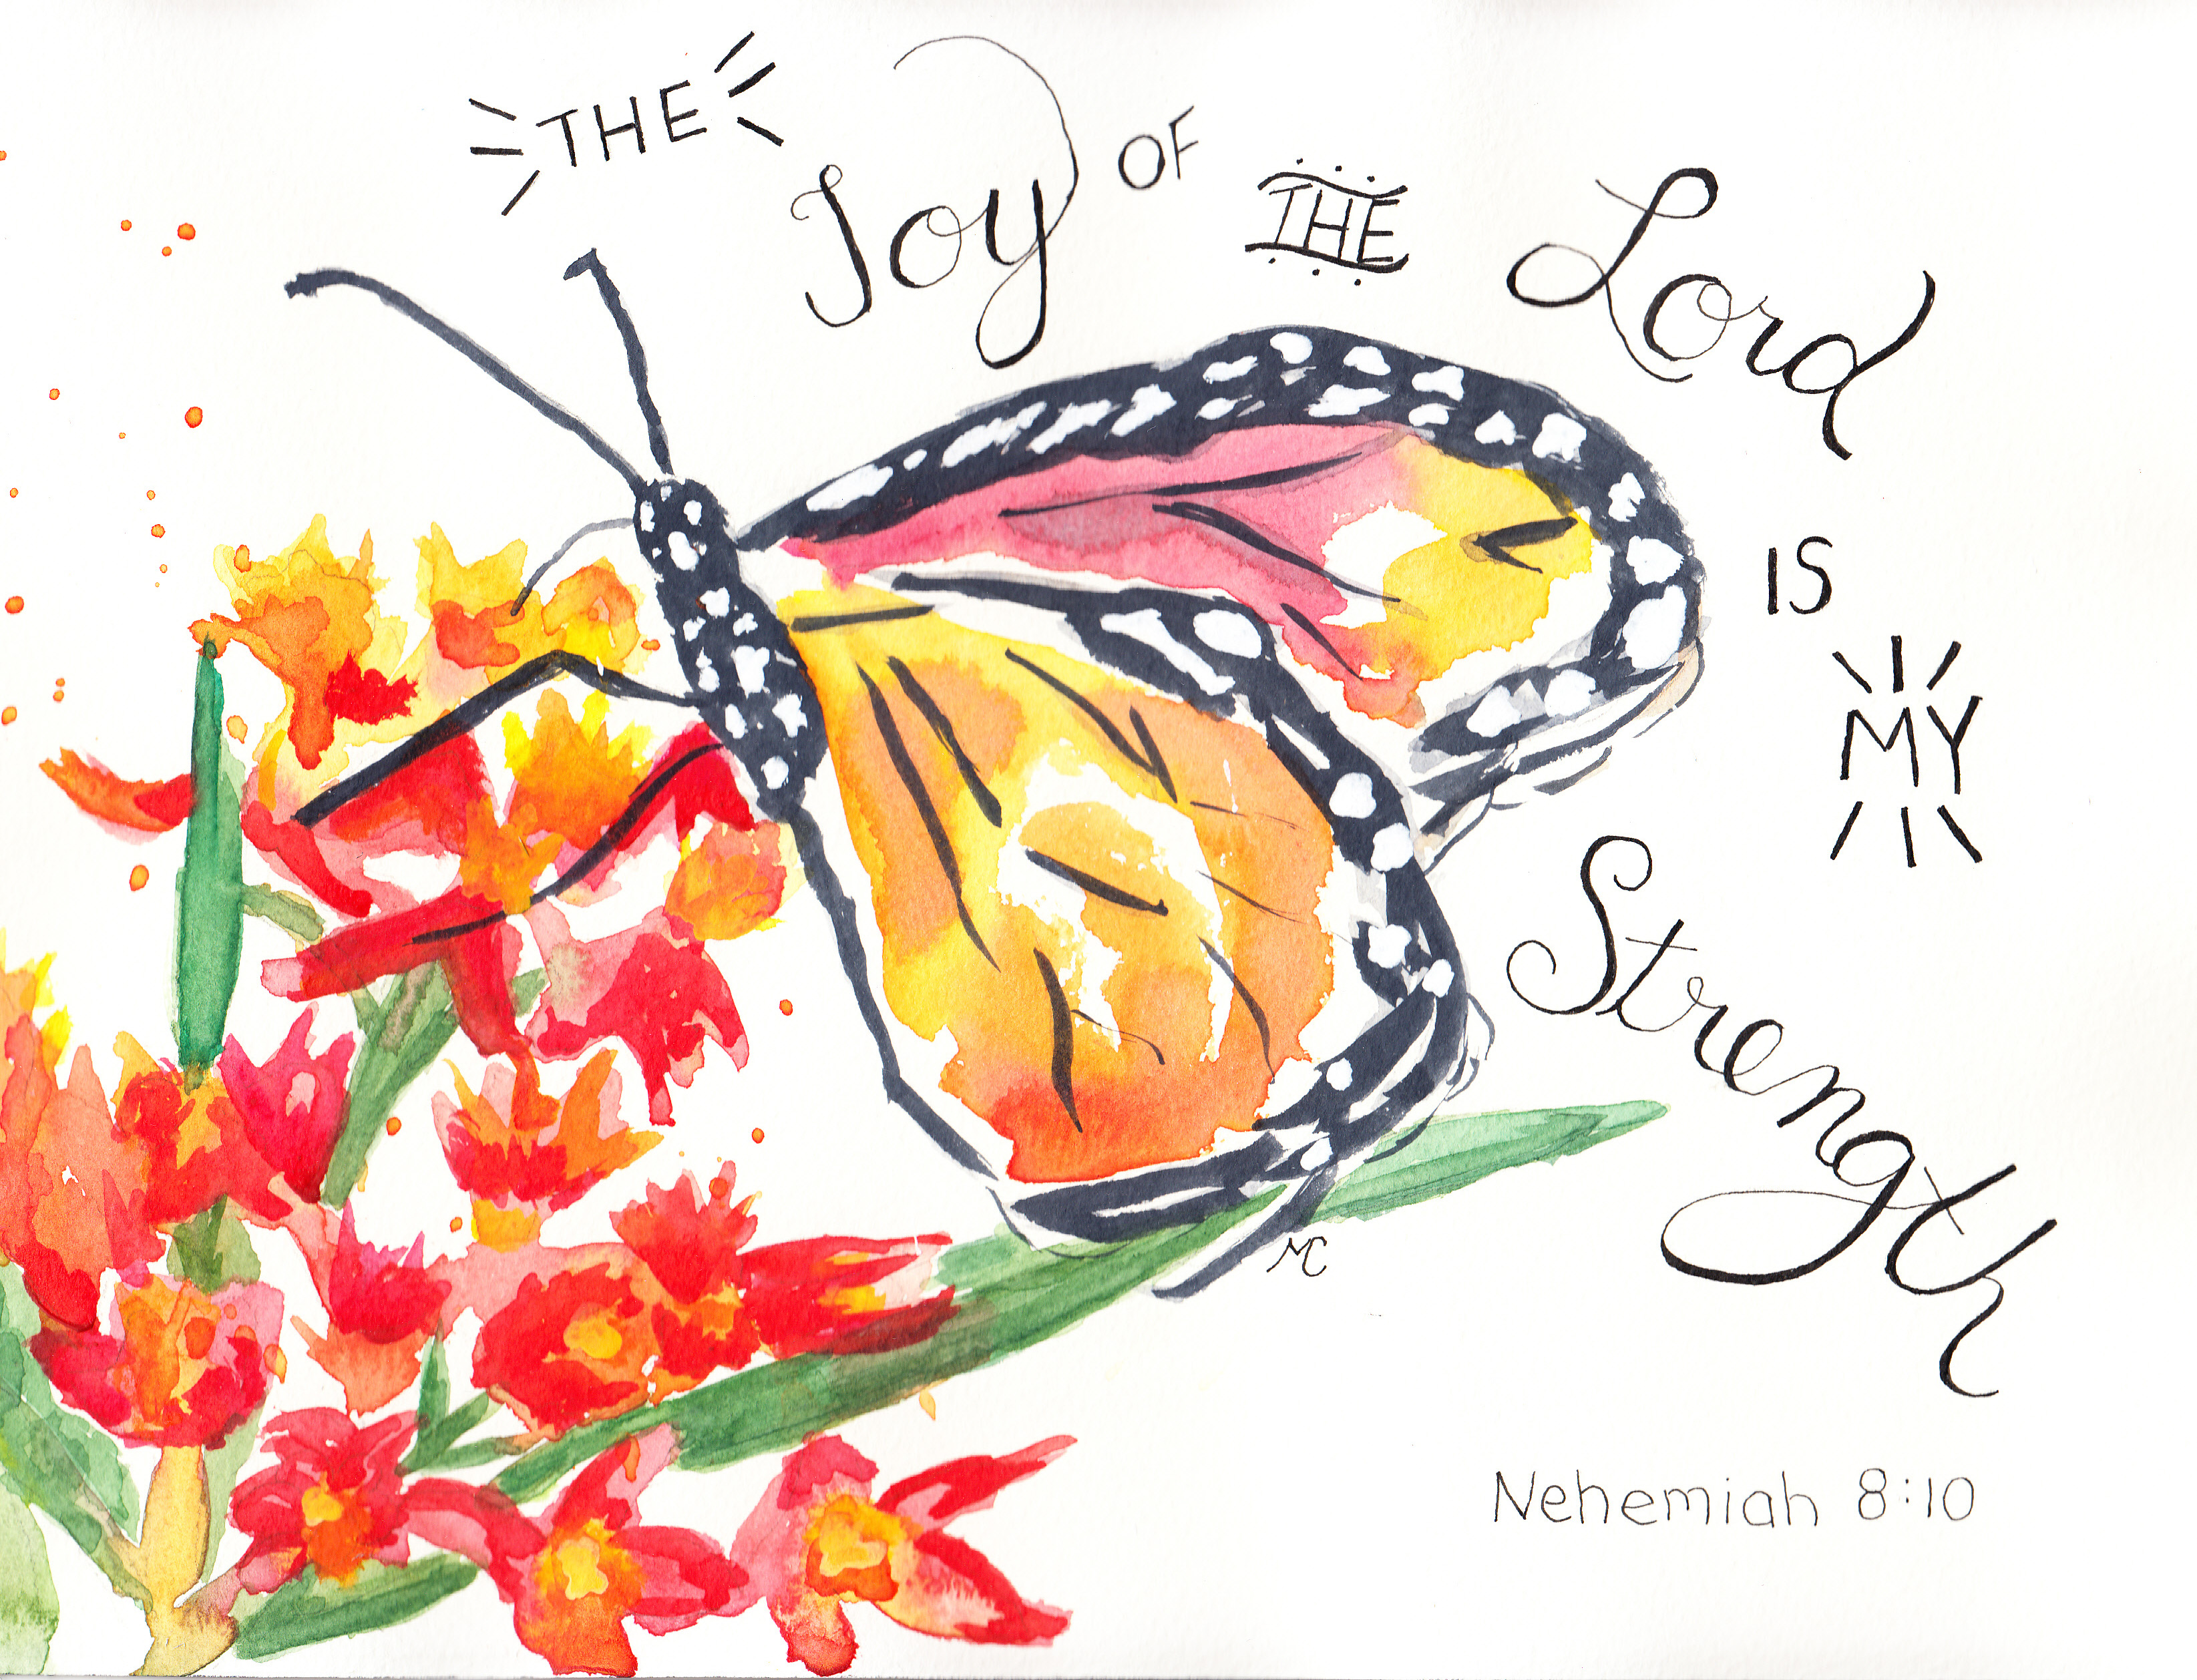 THE Joy OF THE Lord
IS
MY
Strength
MC
Nehemiah 8:10